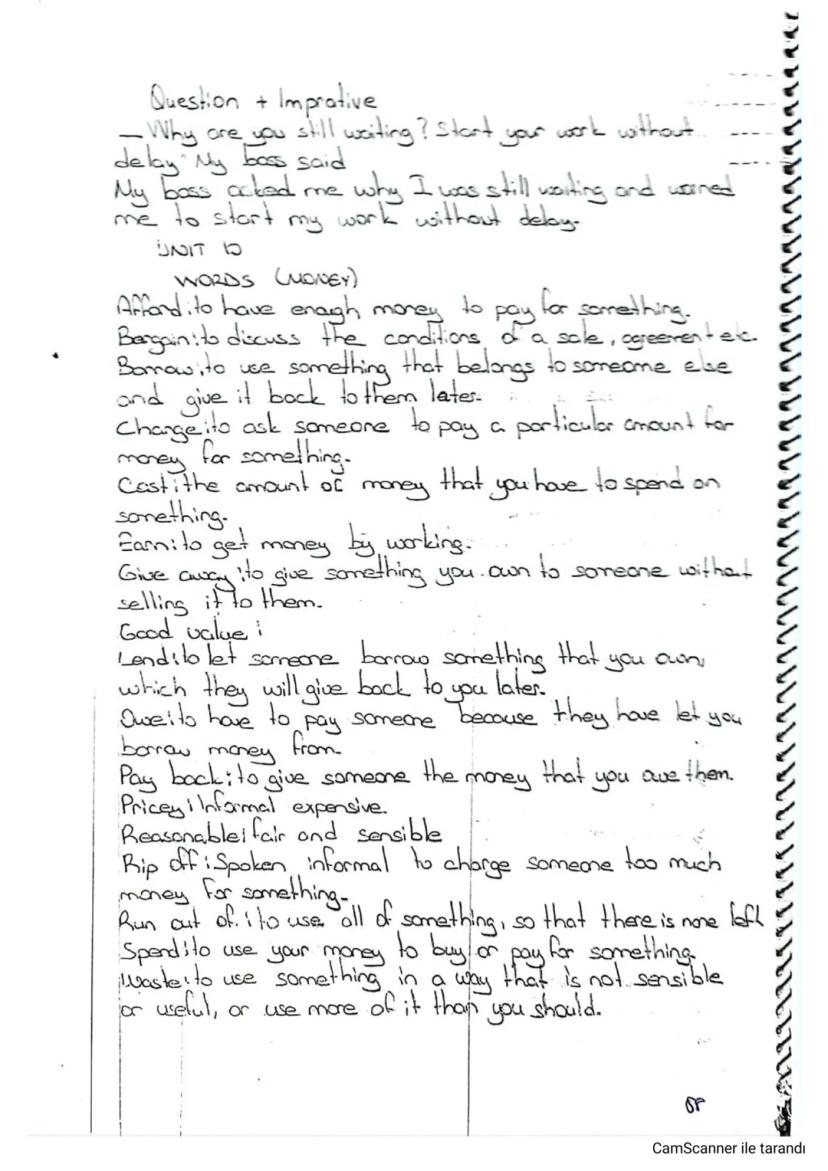 Question + Imprative
— Why are you still waiting? Start your work without
delay" My boss said
My boss acked me why I was still waiting and warned
me to start my work without delay.
UNIT 10
WORDS (MONEY)
Afford: to have enough money to pay for something.
Bargain: to discuss the conditions of a sale, agreement etc.
Borrow: to use something that belongs to someone else
and give it back to them later.
Change: to ask someone to pay a particular amount for
money for something.
Cost: the amount of money that you have to spend on
something.
Earn: to get money by working.
Give away: to give something you own to someone without
selling it to them.
Good value:
Lend: to let someone borrow something that you own,
which they will give back to you later.
Owe: to have to pay someone because they have let you
borrow money from.
Pay back: to give someone the money that you owe them.
Pricey: Informal expensive.
Reasonable: fair and sensible
Rip off: Spoken informal to charge someone too much
money for something.
Run out of: to use all of something, so that there is none left
Spend: to use your money to buy or pay for something.
Waste: to use something in a way that is not sensible
or useful, or use more of it than you should.
CamScanner ile tarandı